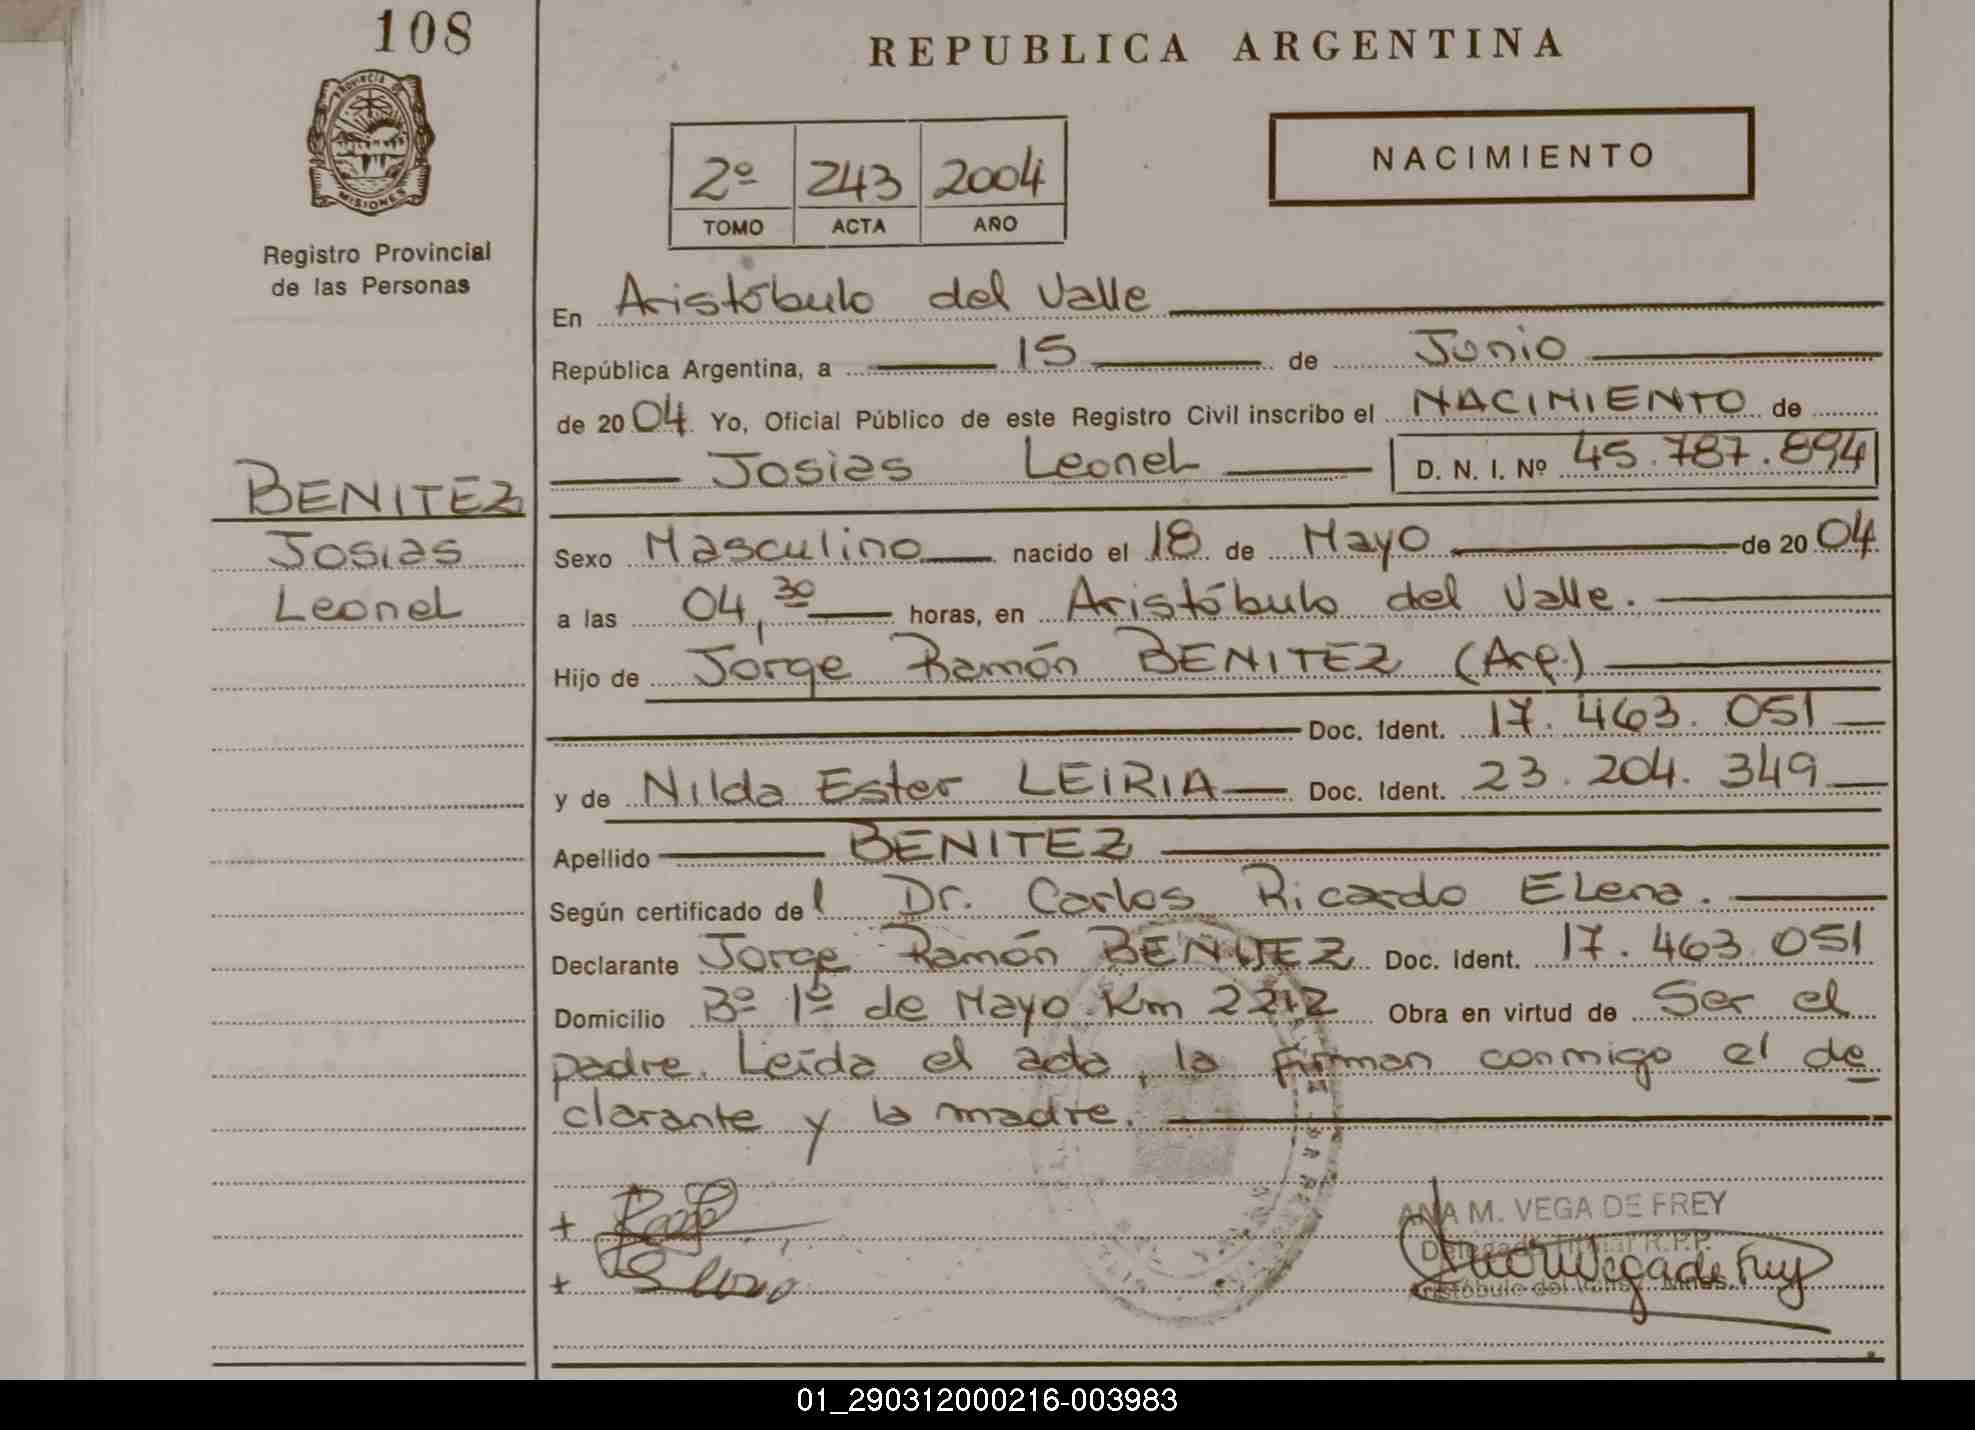 108
PROVINCIA DE
MISIONES
Registro Provincial
de las Personas
BENITEZ
Josias
Leonel
REPUBLICA ARGENTINA
2º 243 2004
TOMO ACTA AÑO
NACIMIENTO
En Aristóbulo del Valle
República Argentina, a 15 de Junio
de 2004. Yo, Oficial Público de este Registro Civil inscribo el NACIMIENTO de
Josias Leonel D. N. I. Nº 45.787.894
Sexo Masculino nacido el 18 de Mayo de 2004
a las 04,30 horas, en Aristóbulo del Valle.
Hijo de Jorge Ramón BENITEZ (Arg.)
Doc. Ident. 17.463.051
y de Nilda Ester LEIRIA Doc. Ident. 23.204.349
Apellido BENITEZ
Según certificado del Dr. Carlos Ricardo Elena.
Declarante Jorge Ramón BENITEZ Doc. Ident. 17.463.051
Domicilio Bº 1º de Mayo Km 2212 Obra en virtud de Ser el
padre. Leída el acta, la firman conmigo el de
clarante y la madre.
+
+
ANA M. VEGA DE FREY
R.P.P.
Aristóbulo del Valle
01_290312000216-003983